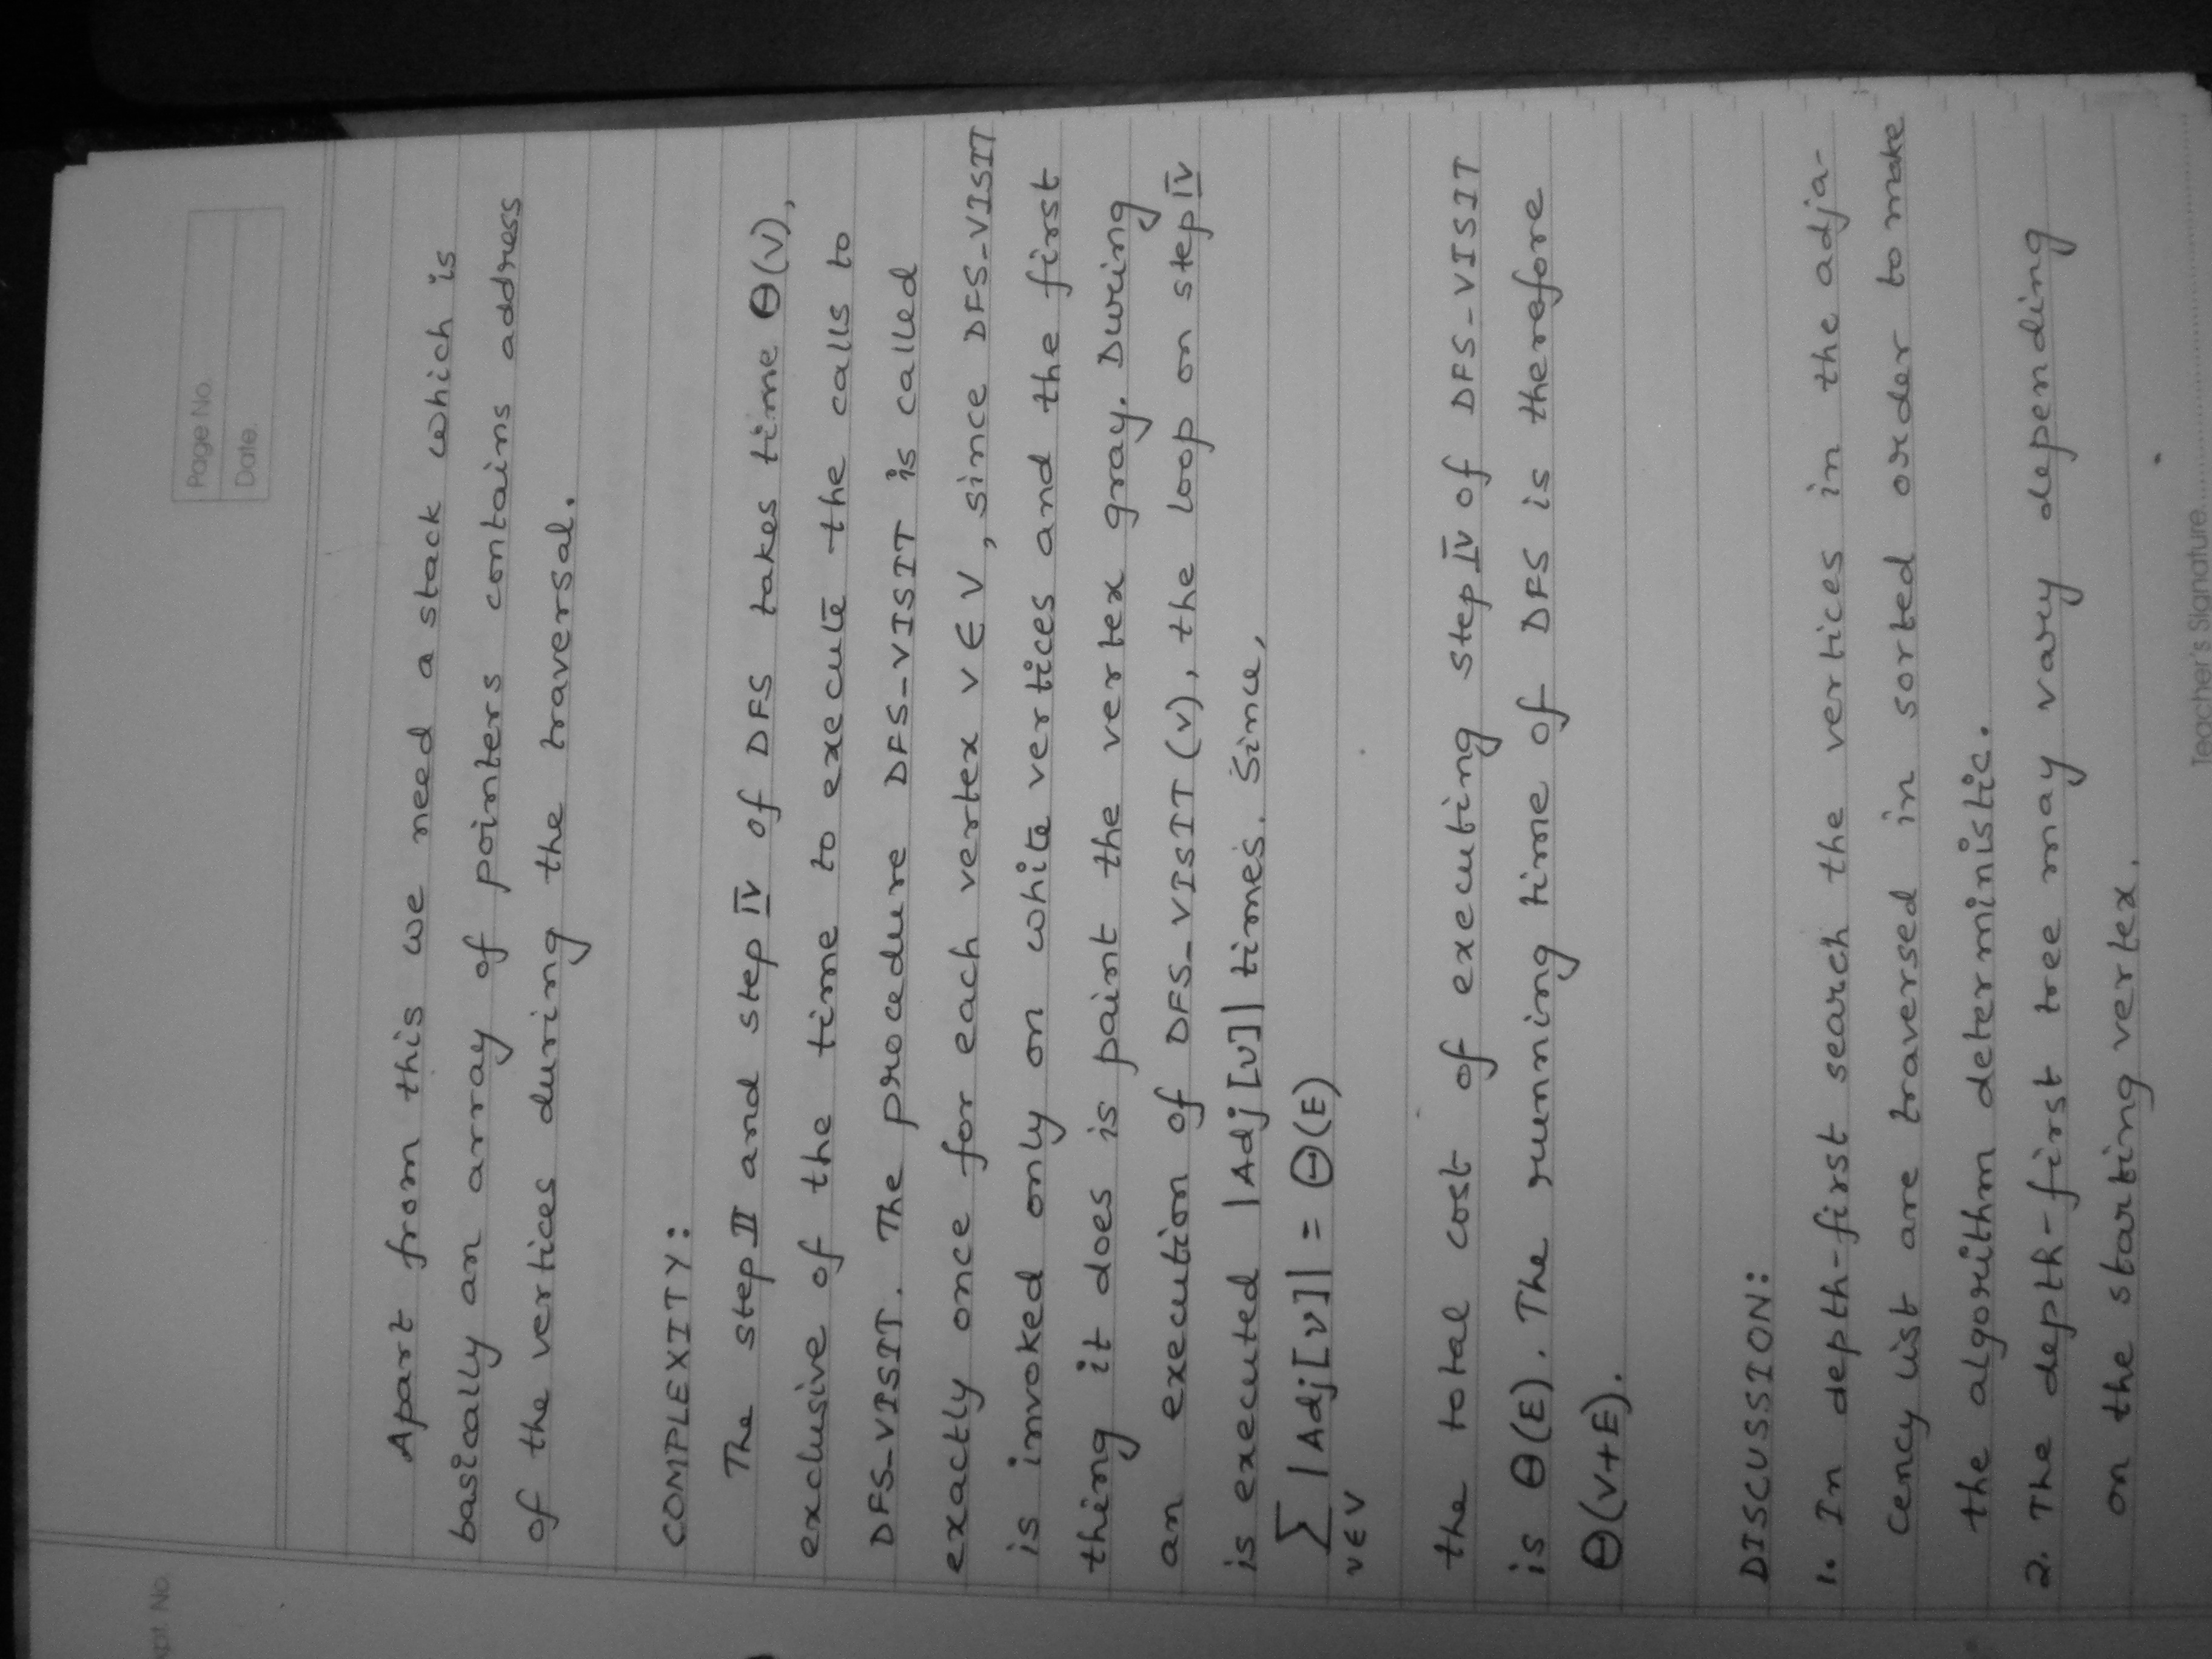 Expt. No.
Page No.
Date.
Apart from this we need a stack which is
basically an array of pointers contains address
of the vertices during the traversal.
COMPLEXITY:
The step II and step IV of DFS takes time Θ(V),
exclusive of the time to execute the calls to
DFS_VISIT. The procedure DFS_VISIT is called
exactly once for each vertex v ∈ V, since DFS_VISIT
is invoked only on white vertices and the first
thing it does is paint the vertex gray. During
an execution of DFS_VISIT (v), the loop on step IV
is executed |Adj[v]| times. Since,
∑ |Adj[v]| = Θ(E)
v∈V
the total cost of executing step IV of DFS_VISIT
is Θ(E). The running time of DFS is therefore
Θ(V+E).
DISCUSSION:
1. In depth-first search the vertices in the adja-
cency list are traversed in sorted order to make
the algorithm deterministic.
2. The depth-first tree may vary depending
on the starting vertex.
Teacher's Signature